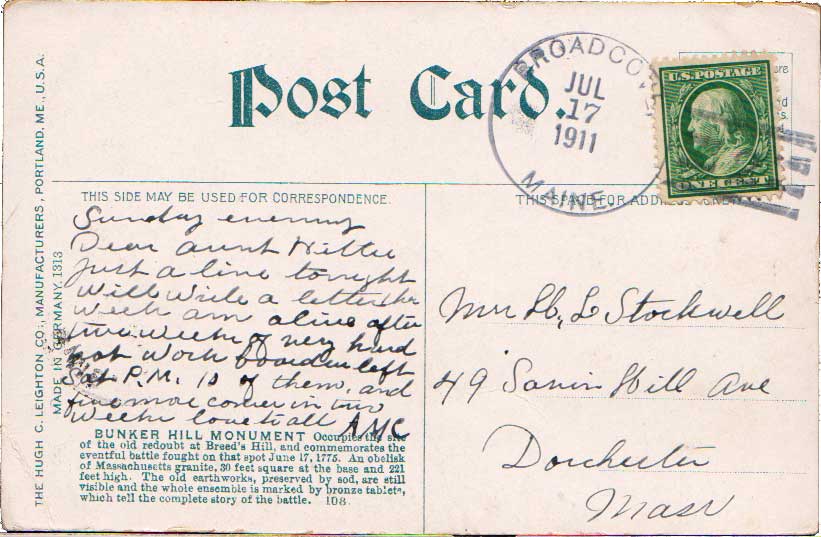 Post Card.
BROADCOVE
JUL
17
1911
MAINE
U.S. POSTAGE
ONE CENT
THIS SIDE MAY BE USED FOR CORRESPONDENCE.
THIS SPACE FOR ADDRESS ONLY
THE HUGH C. LEIGHTON CO., MANUFACTURERS, PORTLAND, ME., U.S.A.
MADE IN GERMANY. 1313
Sunday evening
Dear Aunt Hittie
Just a line tonight
Will write a letter this
week am alive after
two weeks of very hard
hot work boarders left
Sat P.M. 10 of them, and
five more comes in two
weeks love to all A.M.C.
BUNKER HILL MONUMENT Occupies the site
of the old redoubt at Breed's Hill, and commemorates the
eventful battle fought on that spot June 17, 1775. An obelisk
of Massachusetts granite, 30 feet square at the base and 221
feet high. The old earthworks, preserved by sod, are still
visible and the whole ensemble is marked by bronze tablets,
which tell the complete story of the battle. 108.
Mrs H, L Stockwell
49 Savin Hill Ave
Dorchester
Mass